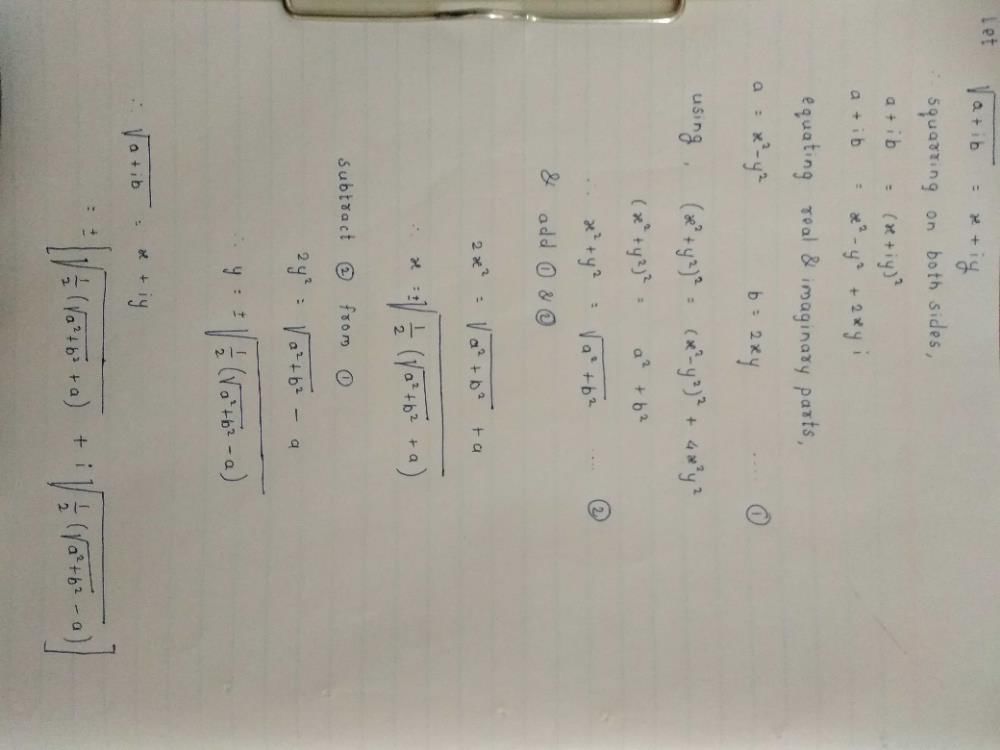 Let
√(a+ib) = x+iy
∴ squarring on both sides,
a+ib = (x+iy)²
a+ib = x²-y² + 2xyi
equating real & imaginary parts,
a = x²-y² b = 2xy .... ①
using, (x²+y²)² = (x²-y²)² + 4x²y²
(x²+y²)² = a² + b²
∴ x²+y² = √(a²+b²) .... ②
& add ① & ②
2x² = √(a²+b²) + a
∴ x = ±√(1/2 (√(a²+b²) + a))
subtract ② from ①
2y² = √(a²+b²) - a
∴ y = ±√(1/2 (√(a²+b²) - a))
∴ √(a+ib) = x + iy
= ±[√(1/2 (√(a²+b²) + a)) + i√(1/2 (√(a²+b²) - a))]